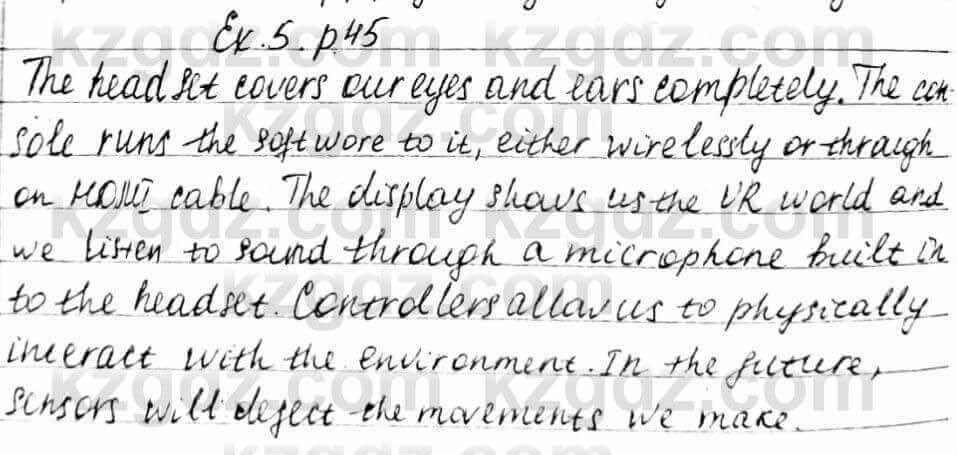 Ex. 5. p45
The head set covers our eyes and ears completely. The con-
sole runs the soft wore to it, either wirelessly or through
on HDMI cable. The display shows us the VR world and
we listen to sound through a microphone built in
to the headset. Controllers allow us to physically
interact with the environment. In the future,
sensors will defect the movements we make.
kzgdz.com